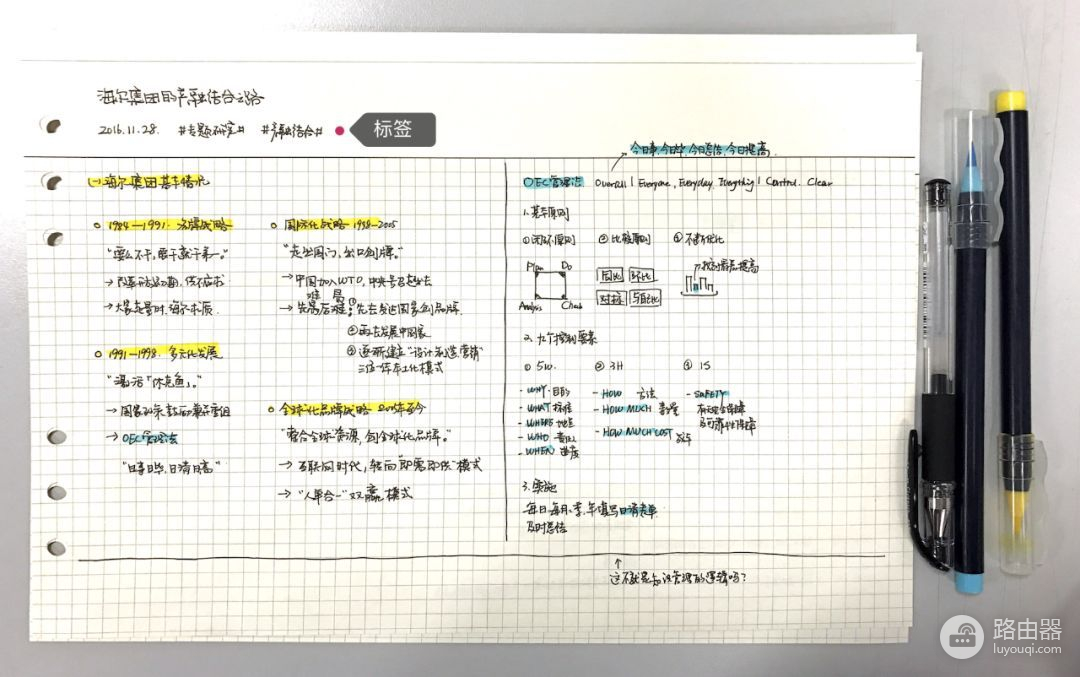 海尔集团的产融结合之路
2016.11.28. #专题研究# #产融结合# 标签
(一)海尔集团基本情况
1984—1991. 名牌战略
"要么不干，要干就干第一。"
→ 改革开放初期，供不应求
→ 大家走量时，海尔求质.
1991—1998. 多元化发展
"激活"休克鱼"。"
→ 国家政策鼓励兼并重组
→ OEC管理法
"日事日毕，日清日高"
国际化战略 1998—2005
"走出国门，出口创牌。"
→ 中国加入WTO，中央号召走出去
难 易
→ 先易后难：①先去发达国家创品牌.
②再去发展中国家
③逐渐建立"设计、制造、营销"
三位一体本土化模式
全球化品牌战略 2005年至今
"整合全球资源，创全球化品牌。"
→ 互联网时代，转向即需即供模式
→ "人单合一"双赢模式
今日事，今日毕，今日总结，今日提高.
OEC管理法 Overall | Everyone, Everyday, Everything | Control. Clear
1. 基本原则
①闭环原则 ②比较原则 ③不断优化
Plan Do
Analysis Check
同比 环比
对标 与自比
找到最差提高
2. 九个控制要素
① 5W. ② 3H ③ 1S
- WHY. 目的
- WHAT 标准
- WHERE 地点
- WHO 责任
- WHEN 进度
- HOW 方法
- HOW MUCH 数量
- HOW MUCH COST 成本
- SAFETY
3. 实施
每日、每月、季、年填写日清表单
及时总结
↑
这不就是知识管理的逻辑吗？
路由器
luyouqi.com